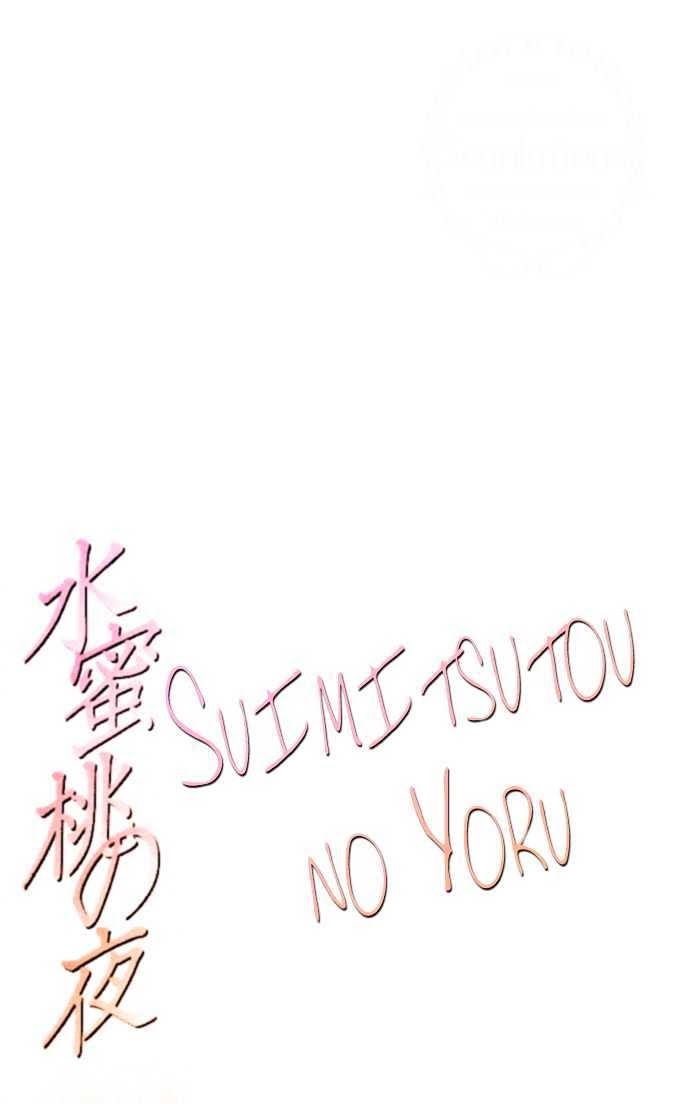 水蜜桃の夜
SUIMITSUTOU
NO YORU